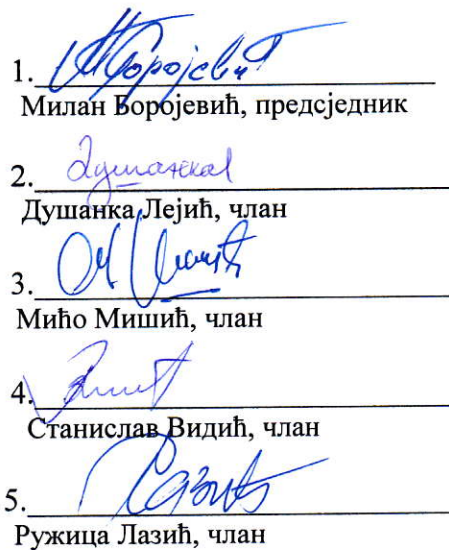 1. М Боројевић
Милан Боројевић, предсједник
2. Душанка
Душанка Лејић, члан
3.
Мићо Мишић, члан
4.
Станислав Видић, члан
5. Лазић
Ружица Лазић, члан